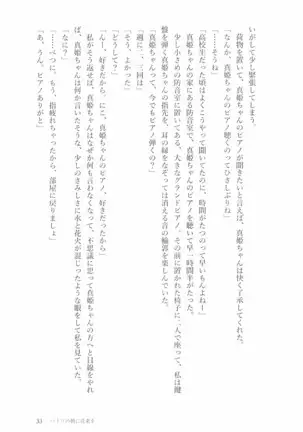 いがして少し緊張してしまう。
荷物を置いて、真姫ちゃんのピアノが聞きたいと言えば、真姫ちゃんは快く了承してくれた。
「なんか、真姫ちゃんのピアノ聴くのってひさしぶりね」
「……そうね」
「高校生だった頃はよくこうやって聞いてたのに、時間がたつのって早いもんよねー」
真姫ちゃんの家にある防音室で、真姫ちゃんのピアノを聴いて早一時間半がたった。
少し小さめの防音室に置いてある、大きなグランドピアノ。その前に置かれた椅子に二人で座って、私は鍵
盤を弾く真姫ちゃんの指先を、耳の縁をなぞっては消える音の輪郭を楽しんでいた。
「真姫ちゃんって、今でもピアノ弾くの？」
「週に、一回は」
「そう、よかった」
「どうして？」
「んー、好きだから……にこ、真姫ちゃんのピアノ、好きだったから」
私がそう返せば、真姫ちゃんはなぜか何も言わなくなって、不思議に思って真姫ちゃんの方へと目線をやれ
ば、真姫ちゃんは何か言いたそうな、少しのさみしさに水と花火が混じったような眼をして私を見ていた。
「なに？」
「……べつに、もう、指疲れちゃったから、部屋に戻りましょ」
「あ、うん。ピアノありがと」
33